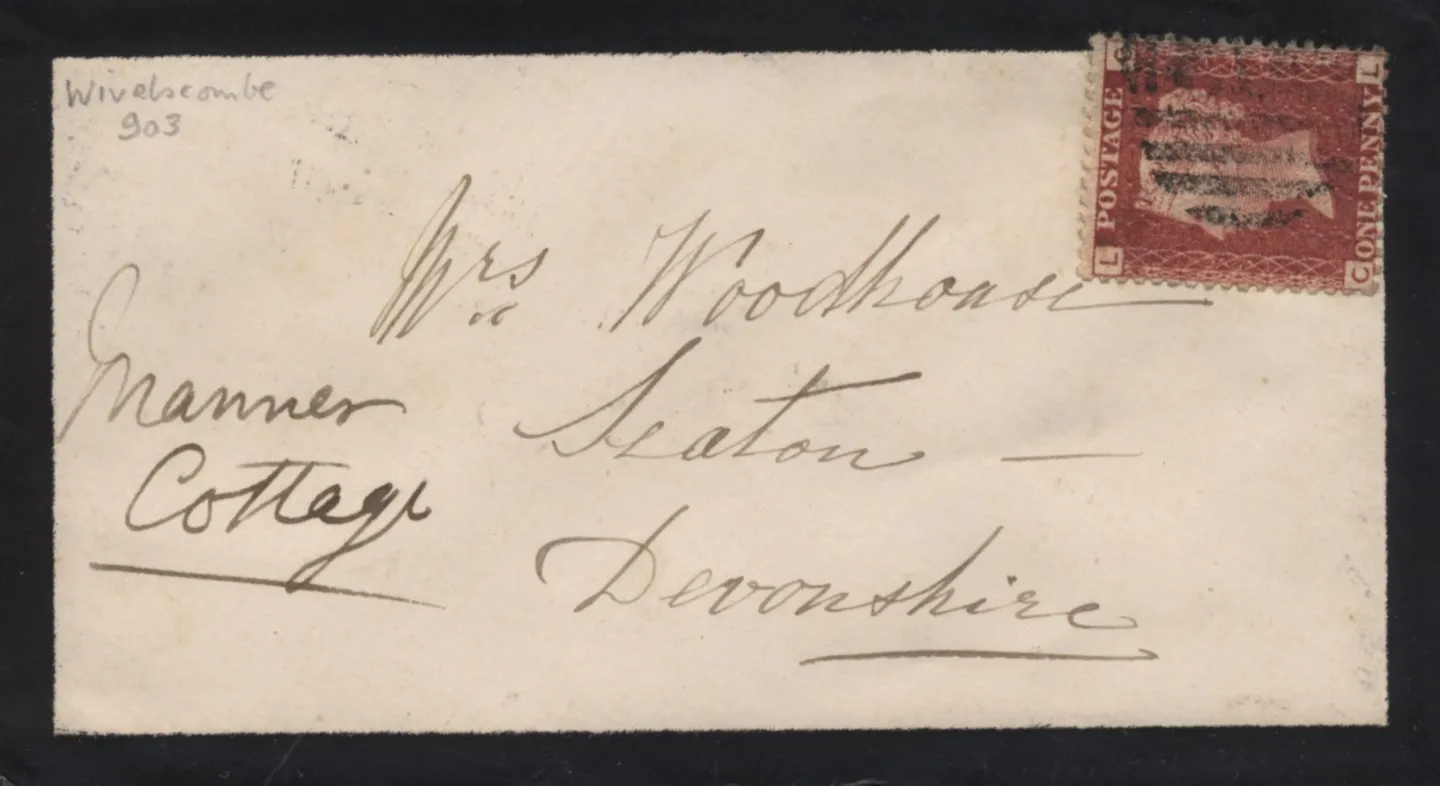 Wivelscombe
903
POSTAGE
ONE PENNY
L
L
C
Mrs Woodhouse
Seaton —
Devonshire
Manner
Cottage